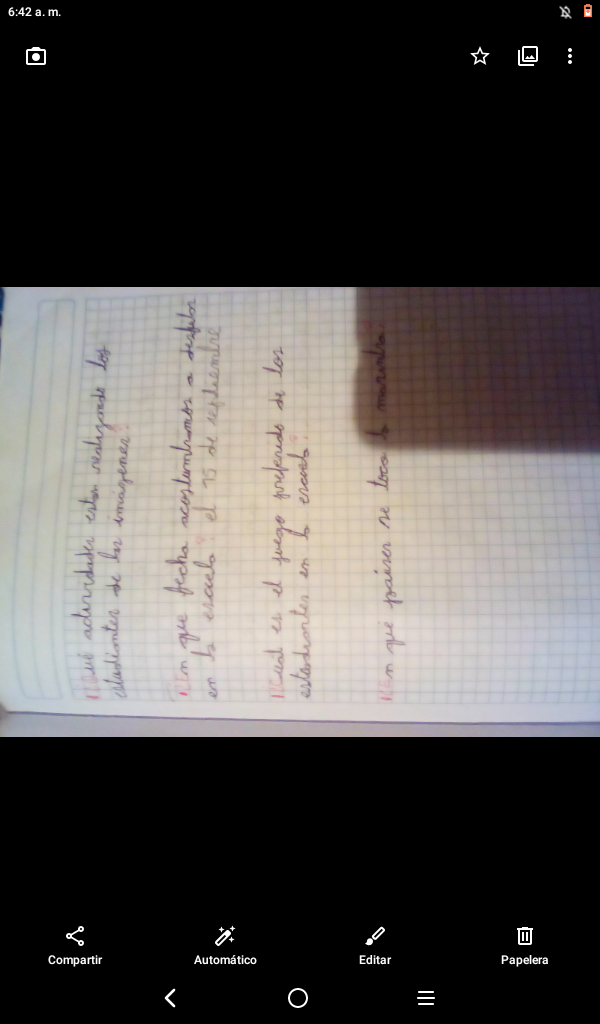 6:42 a. m.
¿Qué actividades estan realizando los
estudiantes de las imágenes?
¿En que fecha acostumbramos a desfilar
en la escuela? el 15 de septiembre
¿Cuál es el juego preferido de los
estudiantes en la escuela?
¿En qué paises se toca la marimba?
Compartir
Automático
Editar
Papelera